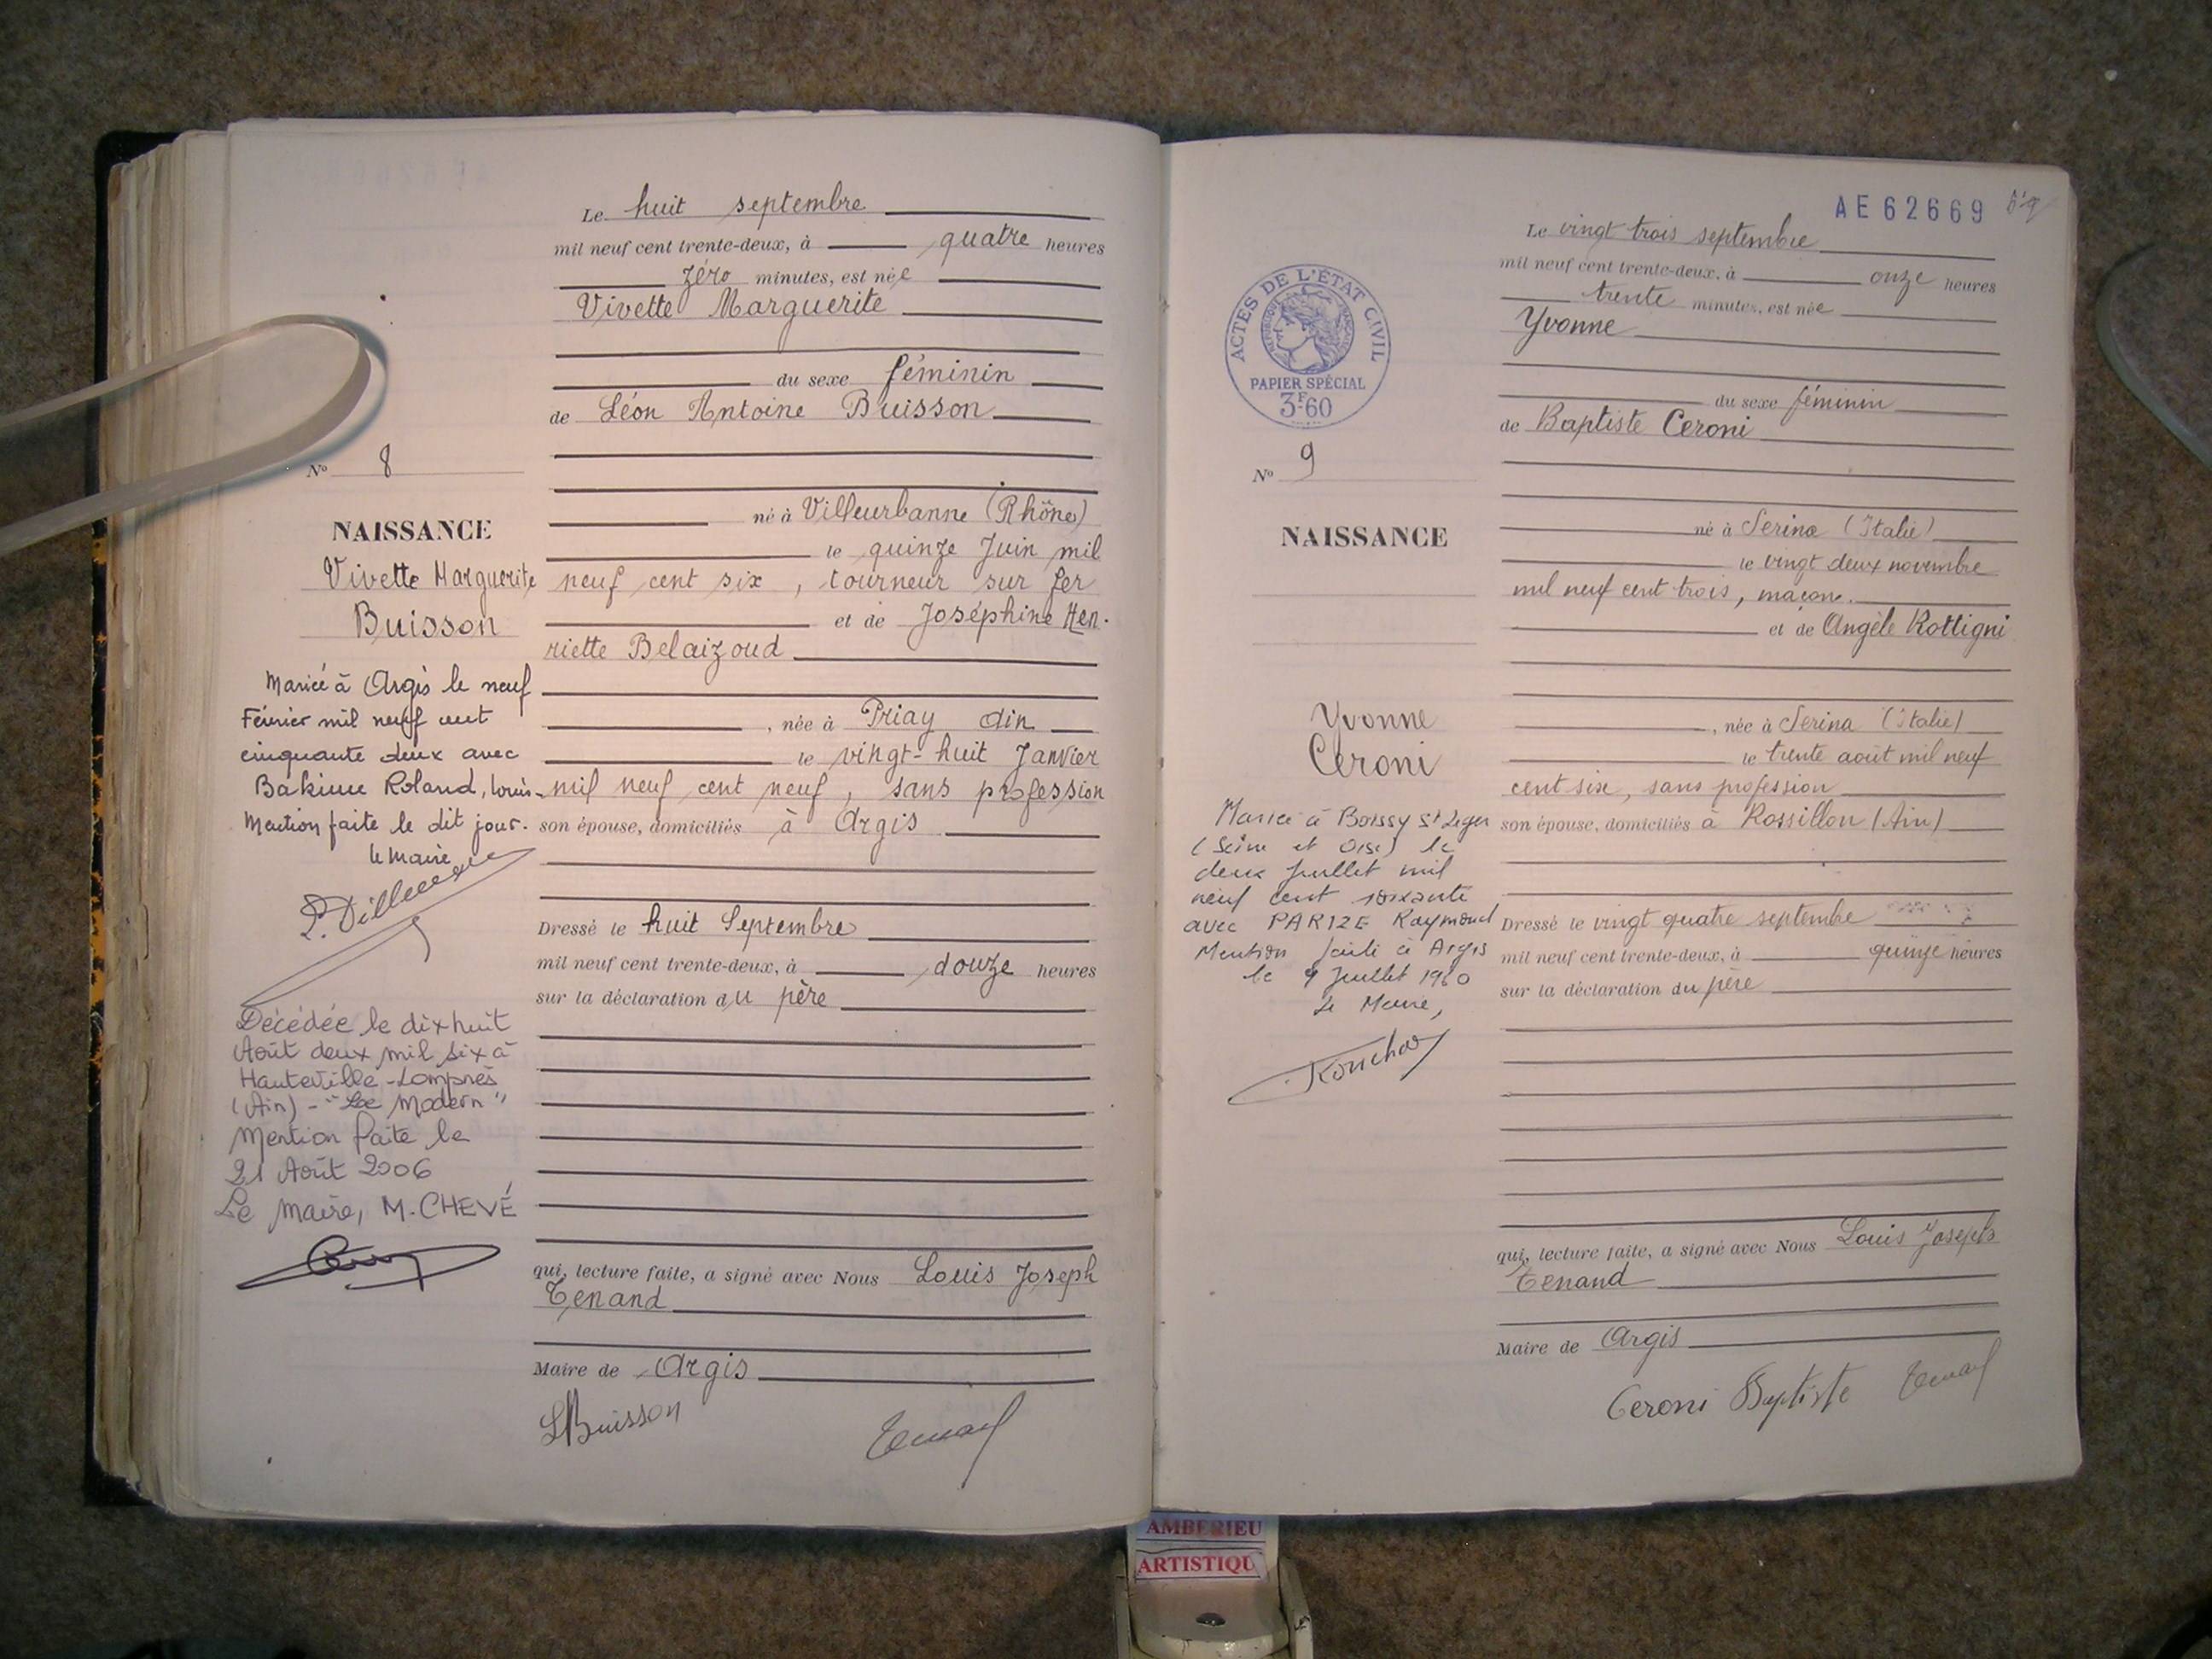 Le huit septembre
mil neuf cent trente-deux, à quatre heures
zéro minutes, est née
Vivette Marguerite
du sexe féminin
de Léon Antoine Buisson
N° 8
né à Villeurbanne (Rhône)
NAISSANCE
le quinze Juin mil
Vivette Marguerite
neuf cent six, tourneur sur fer
Buisson
et de Joséphine Hen-
riette Belaizoud
Mariée à Argis le neuf
Février mil neuf cent
cinquante deux avec
Roland, Louis.
Mention faite le dit jour.
le Maire
née à Priay Ain
le vingt-huit Janvier
mil neuf cent neuf, sans profession
son épouse, domiciliés à Argis
Dressé le huit Septembre
mil neuf cent trente-deux, à douze heures
sur la déclaration du père
Décédée le dix huit
Août deux mil six à
Hauteville-Lompnes
(Ain) - "Le Modern"
Mention faite le
21 Août 2006
Le Maire, M. CHEVÉ
qui, lecture faite, a signé avec Nous Louis Joseph
Tenand
Maire de Argis
LBuisson
Tenand
AE62669
Le vingt trois septembre
mil neuf cent trente-deux, à onze heures
trente minutes, est née
Yvonne
ACTES DE L'ÉTAT CIVIL
RÉPUBLIQUE FRANÇAISE
PAPIER SPÉCIAL
3F60
du sexe féminin
de Baptiste Ceroni
N° 9
né à Serina (Italie)
NAISSANCE
le vingt deux novembre
mil neuf cent trois, maçon.
et de Angèle Rottigni
Yvonne
Ceroni
, née à Serina (Italie)
le trente août mil neuf
cent six, sans profession
son épouse, domiciliés à Rossillon (Ain)
Mariée à Boissy St Leger
(Seine et Oise) le
deux Juillet mil
neuf cent soixante
avec PARIZE Raymond
Mention faite à Argis
le 9 Juillet 1960
Le Maire,
Dressé le vingt quatre septembre
mil neuf cent trente-deux, à quinze heures
sur la déclaration du père
qui, lecture faite, a signé avec Nous Louis Joseph
Tenand
Maire de Argis
Ceroni Baptiste Tenand
AMBERIEU
ARTISTIQU